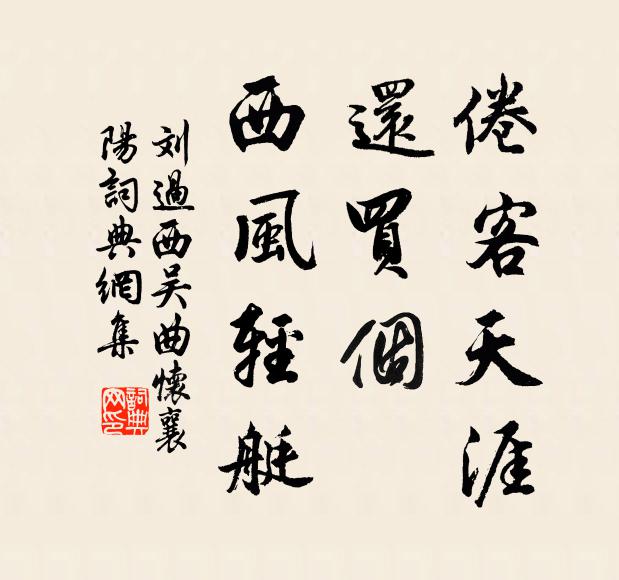 倦客天涯
還買個
西風輕艇
刘過西吴曲懷襄
陽詞典網集
詞典网印